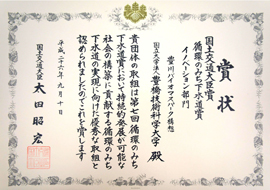 賞状
国土交通大臣賞
循環のみち下水道賞
イノベーション部門
豊川バイオマスパーク構想
国立大学法人豊橋技術科学大学 殿
貴団体の取組は第七回循環のみち
下水道賞において持続的発展が可能な
社会の構築に貢献する循環のみち
下水道の実現に向けた優秀な取組と
認められましたのでこれを賞します
平成二十六年九月十日
国土交通大臣
太田昭宏